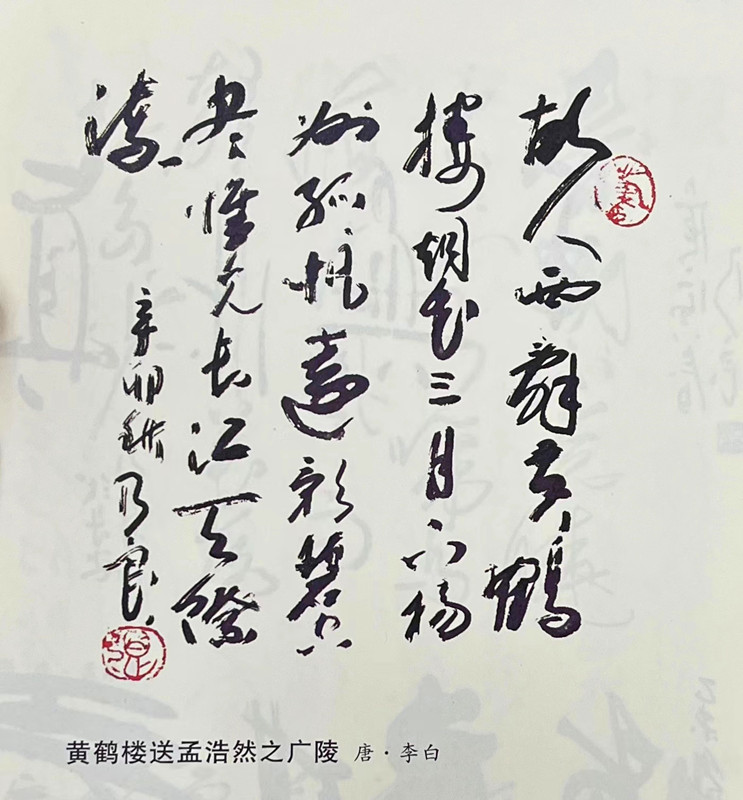 故人西辭黄鶴
楼烟花三月下揚
州孤帆遠影碧空
尽惟见长江天際
流
辛卯秋乃良
黄鹤楼送孟浩然之广陵 唐·李白